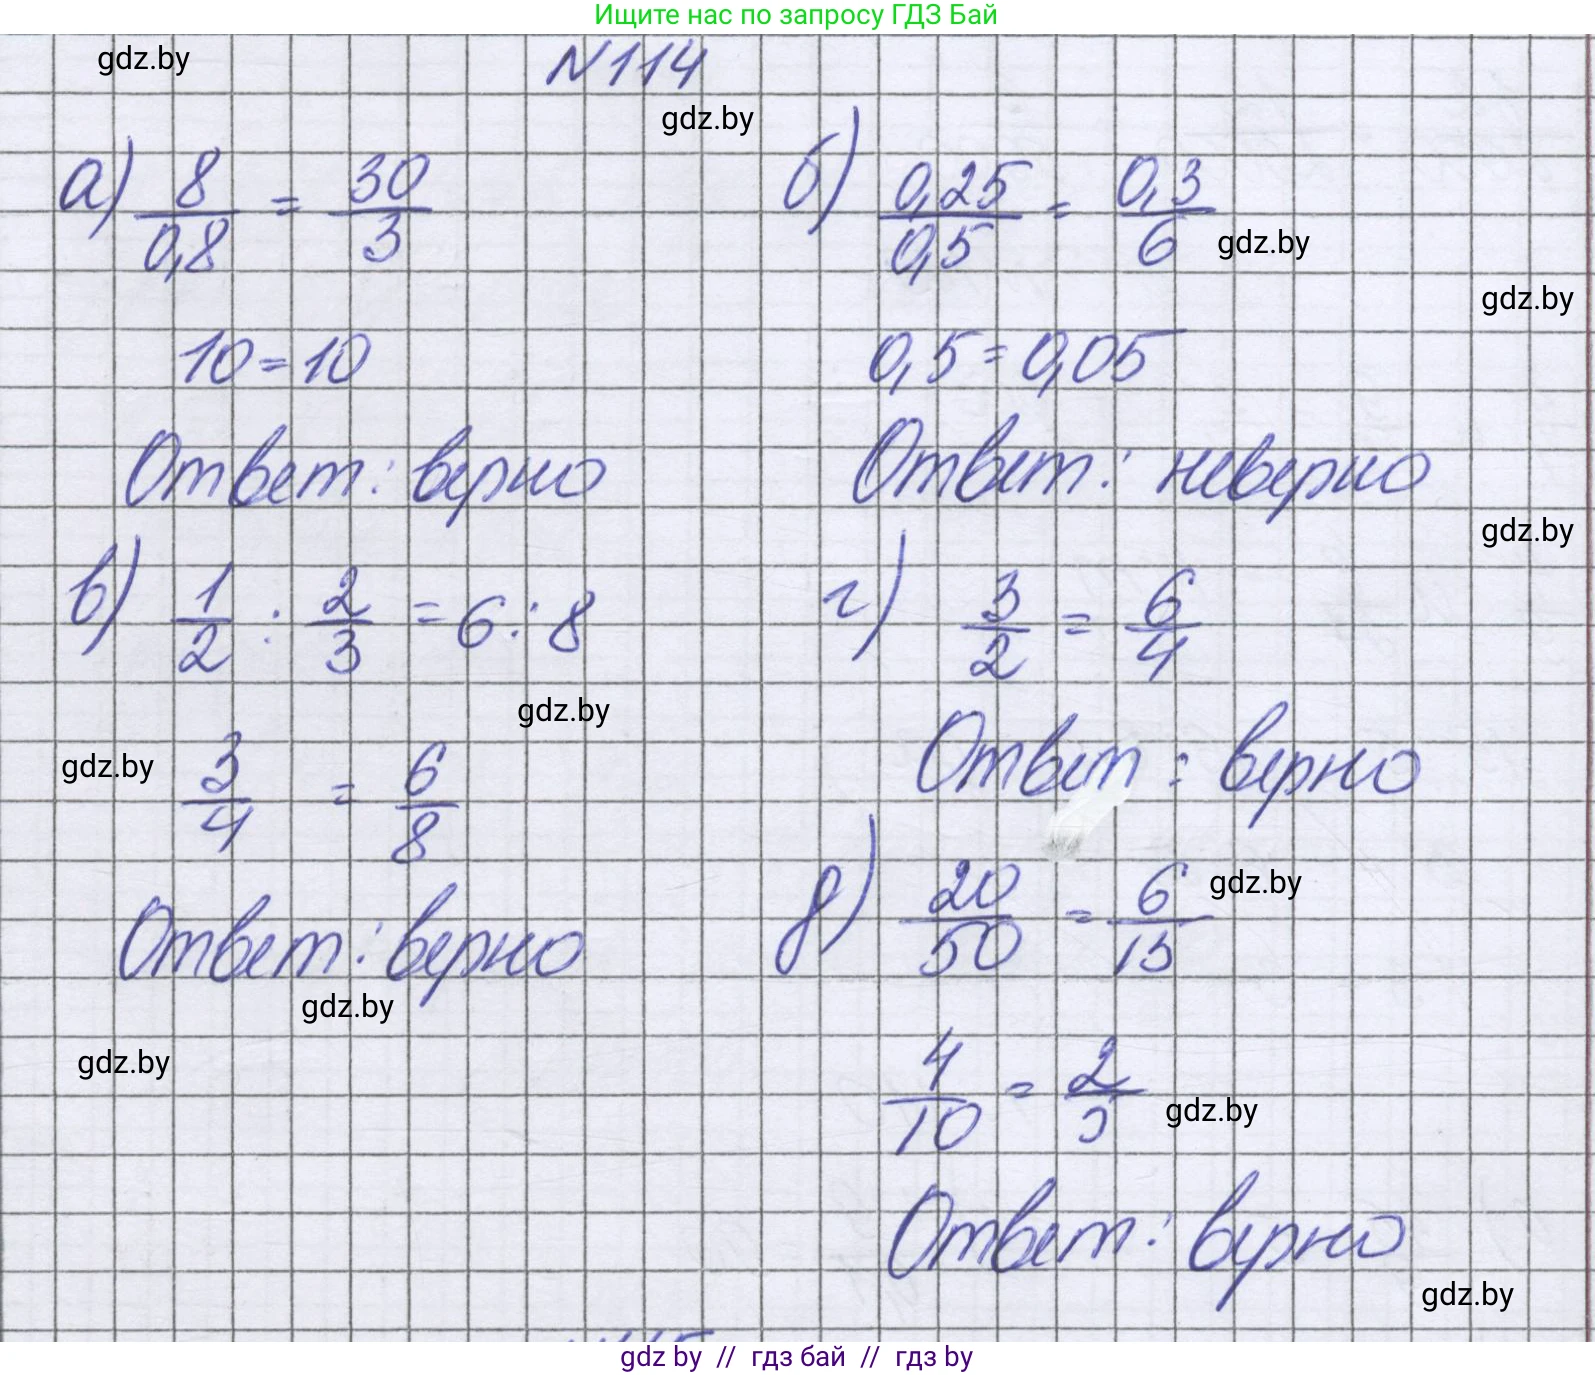 Ищите нас по запросу ГДЗ Бай
gdz.by
N114
gdz.by
а) 8/0,8 = 30/3
10 = 10
Ответ: верно
б) 0,25/0,5 = 0,3/6
gdz.by
gdz.by
0,5 = 0,05
Ответ: неверно
gdz.by
в) 1/2 : 2/3 = 6 : 8
gdz.by
gdz.by
3/4 = 6/8
Ответ: верно
gdz.by
gdz.by
г) 3/2 = 6/4
Ответ: верно
д) 20/50 = 6/15
gdz.by
4/10 = 2/5
gdz.by
Ответ: верно
gdz.by
gdz by // гдз бай // гдз by